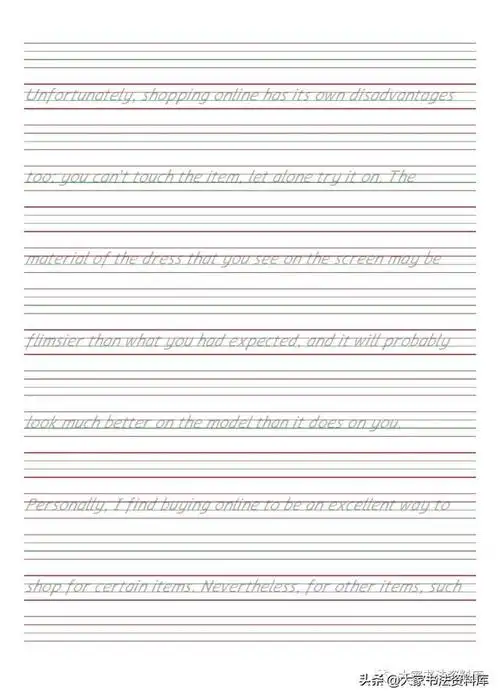 Unfortunately, shopping online has its own disadvantages
too: you can't touch the item, let alone try it on. The
material of the dress that you see on the screen may be
flimsier than what you had expected, and it will probably
look much better on the model than it does on you.
Personally, I find buying online to be an excellent way to
shop for certain items. Nevertheless, for other items, such
头条 @大家书法资料库